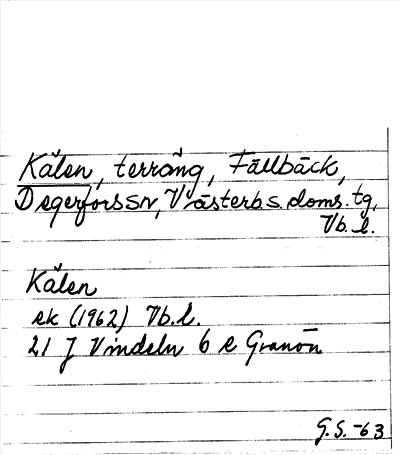 Kälen, terräng, Fällbäck,
Degerfors sn, Västerb. s. doms. tg,
Vb. l.
Kälen
ek (1962) Vb. l.
21 J Vindeln 6 e Granön
G. S. -63